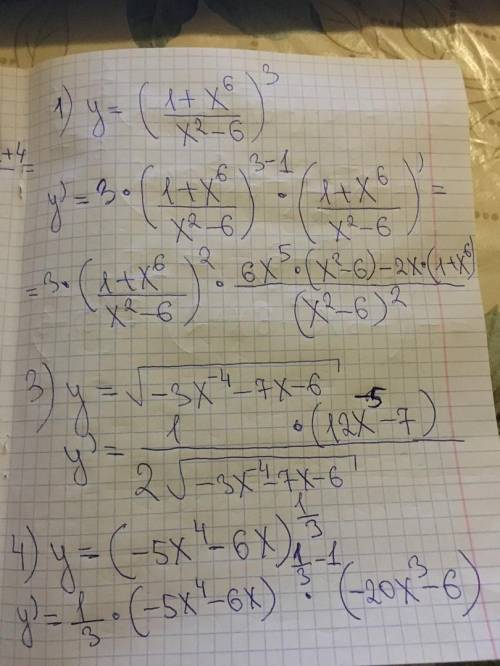 1) y = ((1+x^6)/(x^2-6))^3
x+4 =
y' = 3 · ((1+x^6)/(x^2-6))^(3-1) · ((1+x^6)/(x^2-6))' =
= 3 · ((1+x^6)/(x^2-6))^2 · (6x^5 · (x^2-6) - 2x · (1+x^6))/(x^2-6)^2
3) y = √(-3x^-4 - 7x - 6)
y' = (1 · (12x^-5 - 7))/(2√(-3x^-4 - 7x - 6))
4) y = (-5x^4 - 6x)^(1/3)
y' = 1/3 · (-5x^4 - 6x)^(1/3 - 1) · (-20x^3 - 6)